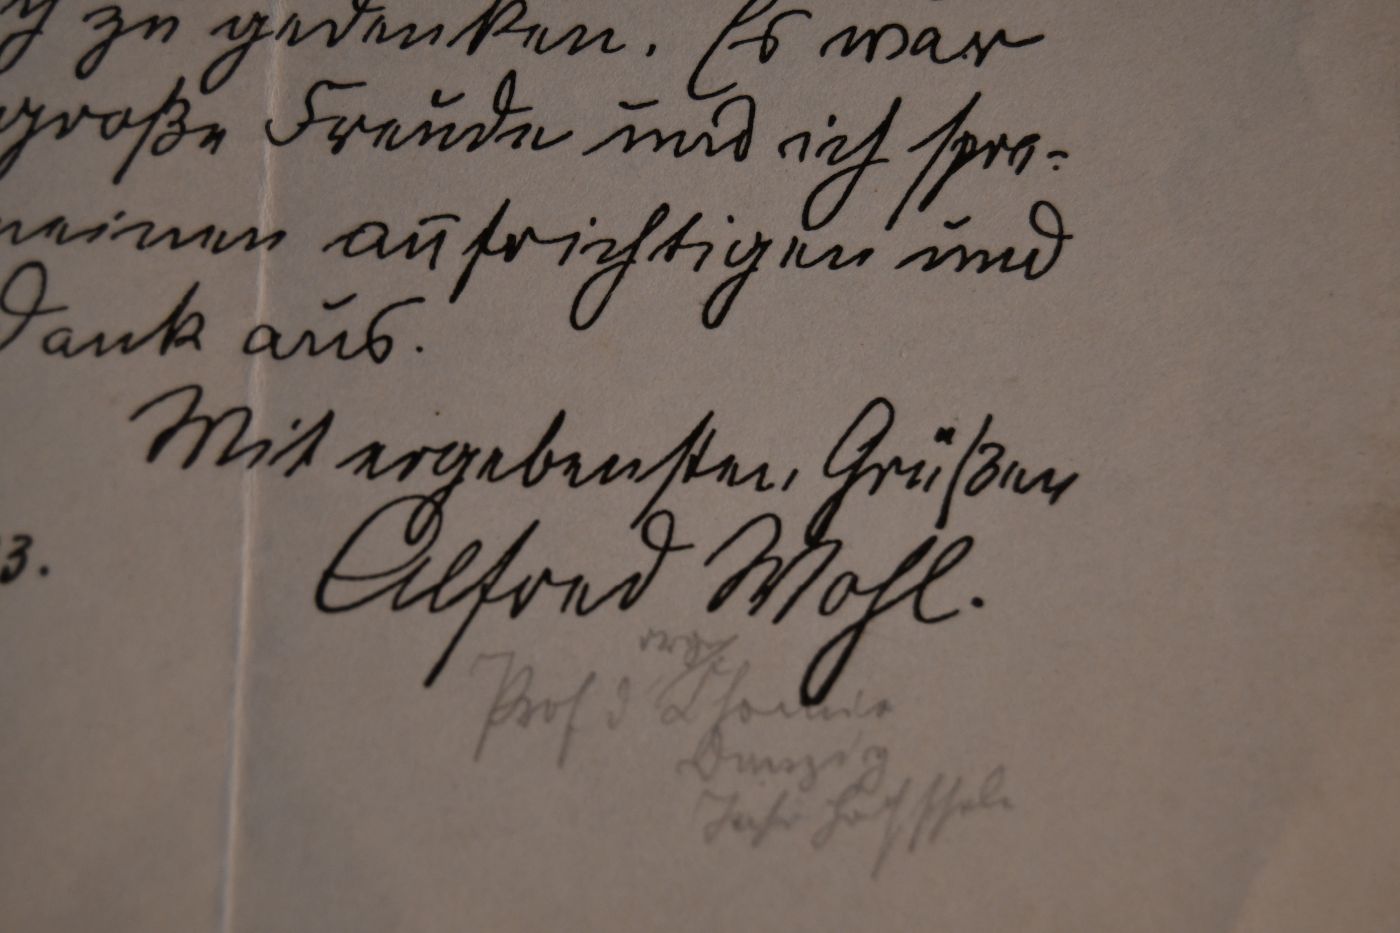 zu gedenken. Es war
große Freude und ich spre-
meinen aufrichtigen und
Dank aus.
Mit ergebensten, Grüßen
3.
Alfred Wohl.
org
Prof d Chemie
Danzig
Techn Hochschule